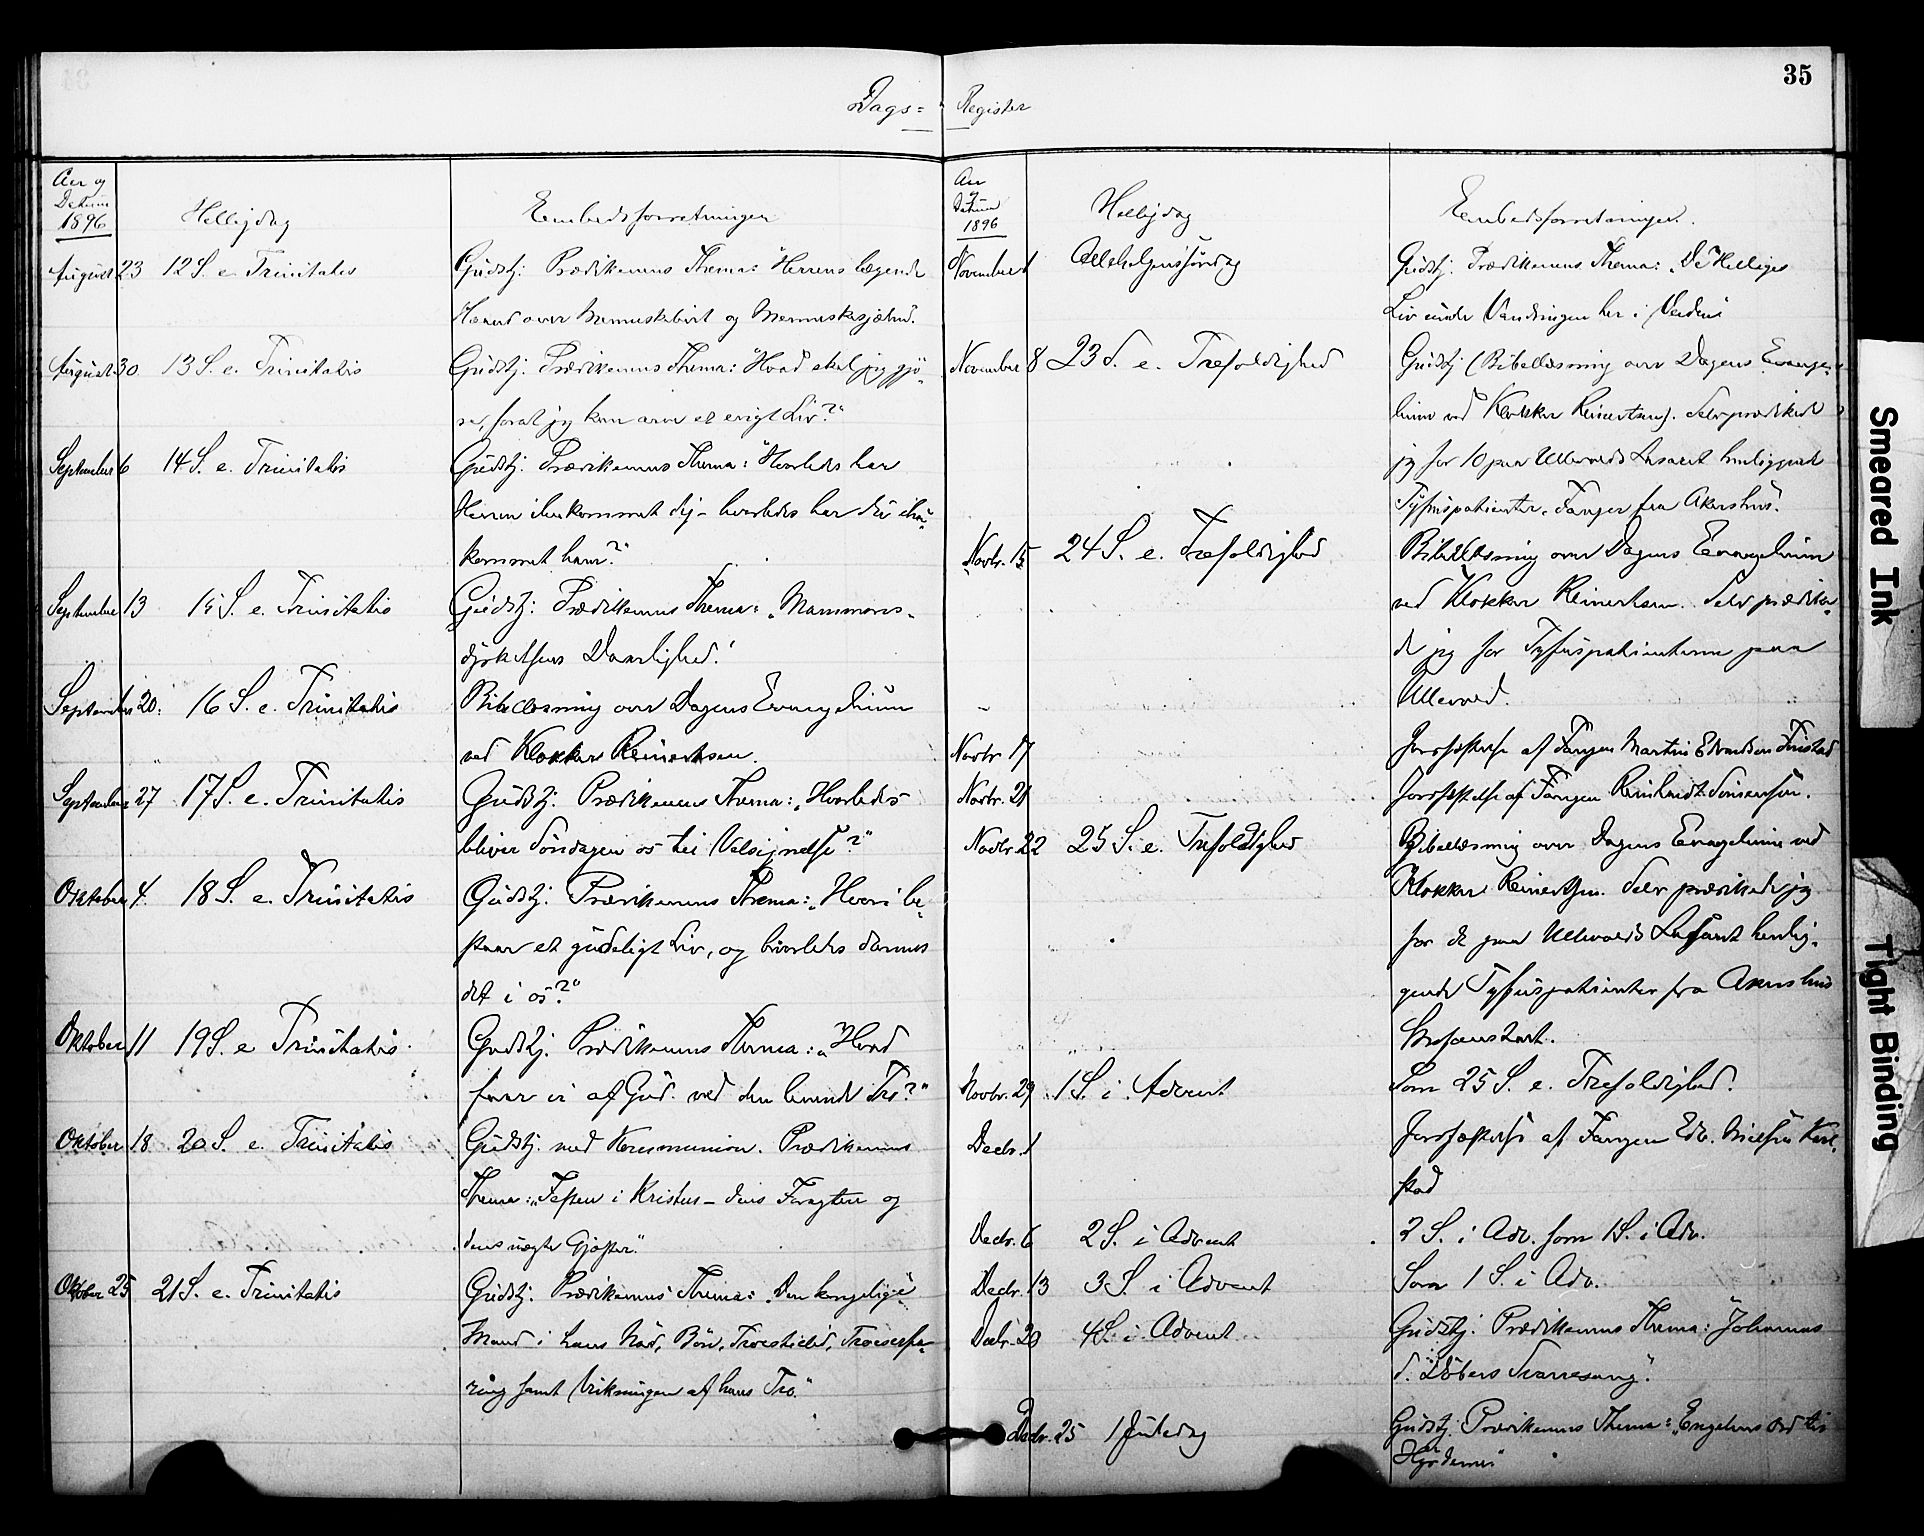 35
Dags= Register
Aar og
Datum
1896
Helligdag
Embedsforretninger
August 23 12 S. e. Trinitatis Gudstj: Prædikenens Thema: "Herrens lægende
Haand over Menneskelivet og Menneskesjælen".
August 30 13 S. e. Trinitatis Gudstj: Prædikenens Thema: "Hvad skal jeg gjö-
re, forat jeg kan arve et evigt Liv?"
September 6 14 S. e. Trinitatis Gudstj: Prædikenens Thema: "Hvorledes har
Herren ihukommet dig - hvorledes har du ihu-
kommet ham?"
September 13 15 S. e. Trinitatis Gudstj: Prædikenens Thema: "Mammons-
dyrkelsens Daarlighed."
September 20. 16 S. e. Trinitatis Bibellæsning over Dagens Evangelium
ved Klokker Reinertsen.
September 27 17 S. e. Trinitatis Gudstj: Prædikenens Thema: "Hvorledes
bliver Söndagen os til Velsignelse?"
Oktober 4. 18 S. e. Trinitatis Gudstj: Prædikenens Thema: "Hvori be-
staar et gudeligt Liv, og hvorledes dannes
det i os?"
Oktober 11 19 S. e Trinitatis. Gudstj. Prædikenens Thema: "Hvad
faar vi af Gud ved den levende Tro?"
Oktober 18 20 S. e. Trinitatis Gudstj. med Kommunion. Prædikenens
Thema: "Festen i Kristus - dens Foragtere og
dens ægte Gjæster."
Oktober 25 21 S. e. Trinitatis Gudstj. Prædikenens Thema: "Den kongelige
Mand i hans Nöd, Bön, Troestillid, Troeserfa-
ring samt Virkningen af hans Tro."
Aar
og
Datum
1896
Helligdag
Embedsforretninger.
November 1 Allehelgenssöndag Gudstj. Prædikenens Thema: "De Helliges
Liv under Vandringen her i Verden"
November 8 23 S. e. Trefoldighed Gudstj (Bibellæsning over Dagens Evange-
lium ved Klokker Reinertsen). Selv prædikede
jeg for 10 paa Ullevolds Lasaret henliggende
Tyfuspatienter, Fanger fra Akershus.
Novbr. 15 24 S. e. Trefoldighed Bibellæsning over Dagens Evangelium
ved Klokker Reinertsen. Selv prædike-
de jeg for Tyfuspatienterne paa
Ullevold.
Novbr 17 Jordfæstelse af Fangen Martin Edvardsen
Novbr. 21 Jordfæstelse af Fangen
Novbr. 22 25 S. e. Trefoldighed Bibellæsning over Dagens Evangelium ved
Klokker Reinertsen. Selv prædikede jeg
for de paa Ullevolds Lasaret henlig-
gende Tyfuspatienter fra Akershus
Novbr. 29 1 S. i Advent Som 25 S. e. Trefoldighed.
Decbr. 1 Jordfæstelse af Fangen Edv. Nielsen
Decbr. 6 2 S. i Advent 2 S. i Adv. som 1 S. i Adv.
Decbr. 13 3 S. i Advent Som 1 S. i Adv.
Decbr. 20 4 S. i Advent Gudstj: Prædikenens Thema: "Johannes
d. Döbers Svanesang."
Decbr. 25 1 Juledag Gudstj. Prædikenens Thema: "Engelens Ord til
Hyrderne"
Smeared Ink
Tight Binding